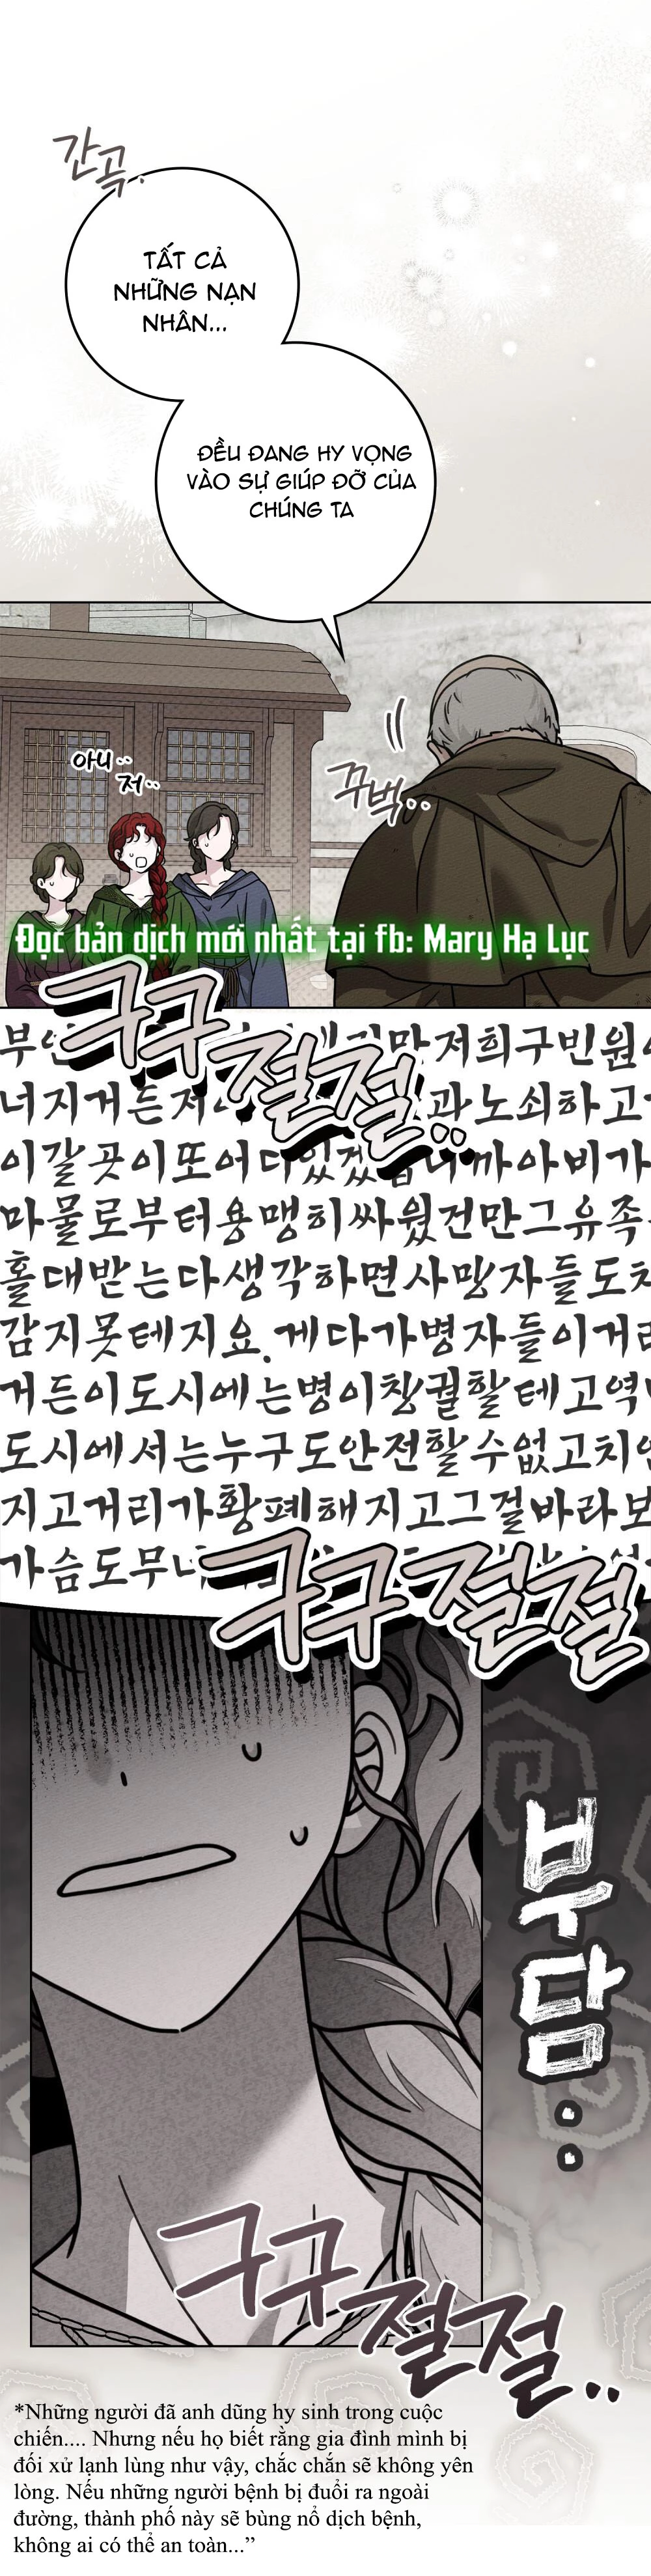 간곡.
TẤT CẢ
NHỮNG NẠN
NHÂN...
ĐỀU ĐANG HY VỌNG
VÀO SỰ GIÚP ĐỠ CỦA
CHÚNG TA
아니..
저..
꾸벅..
Đọc bản dịch mới nhất tại fb: Mary Hạ Lục
구구절절..
저희구빈원
너지거든저 과노쇠하고
이갈곳이또어디있겠습니까아비가
마물로부터용맹히싸웠건만그유족
홀대받는다생각하면사망자들도차
감지못테지요.게다가병자들이거리
거든이도시에는병이창궐할테고역
도시에서는누구도안전할수없고치안
지고거리가황폐해지고그걸바라보
가슴도무너
구구절절
부담..
구구절절..
*Những người đã anh dũng hy sinh trong cuộc
chiến.... Nhưng nếu họ biết rằng gia đình mình bị
đối xử lạnh lùng như vậy, chắc chắn sẽ không yên
lòng. Nếu những người bệnh bị đuổi ra ngoài
đường, thành phố này sẽ bùng nổ dịch bệnh,
không ai có thể an toàn...”